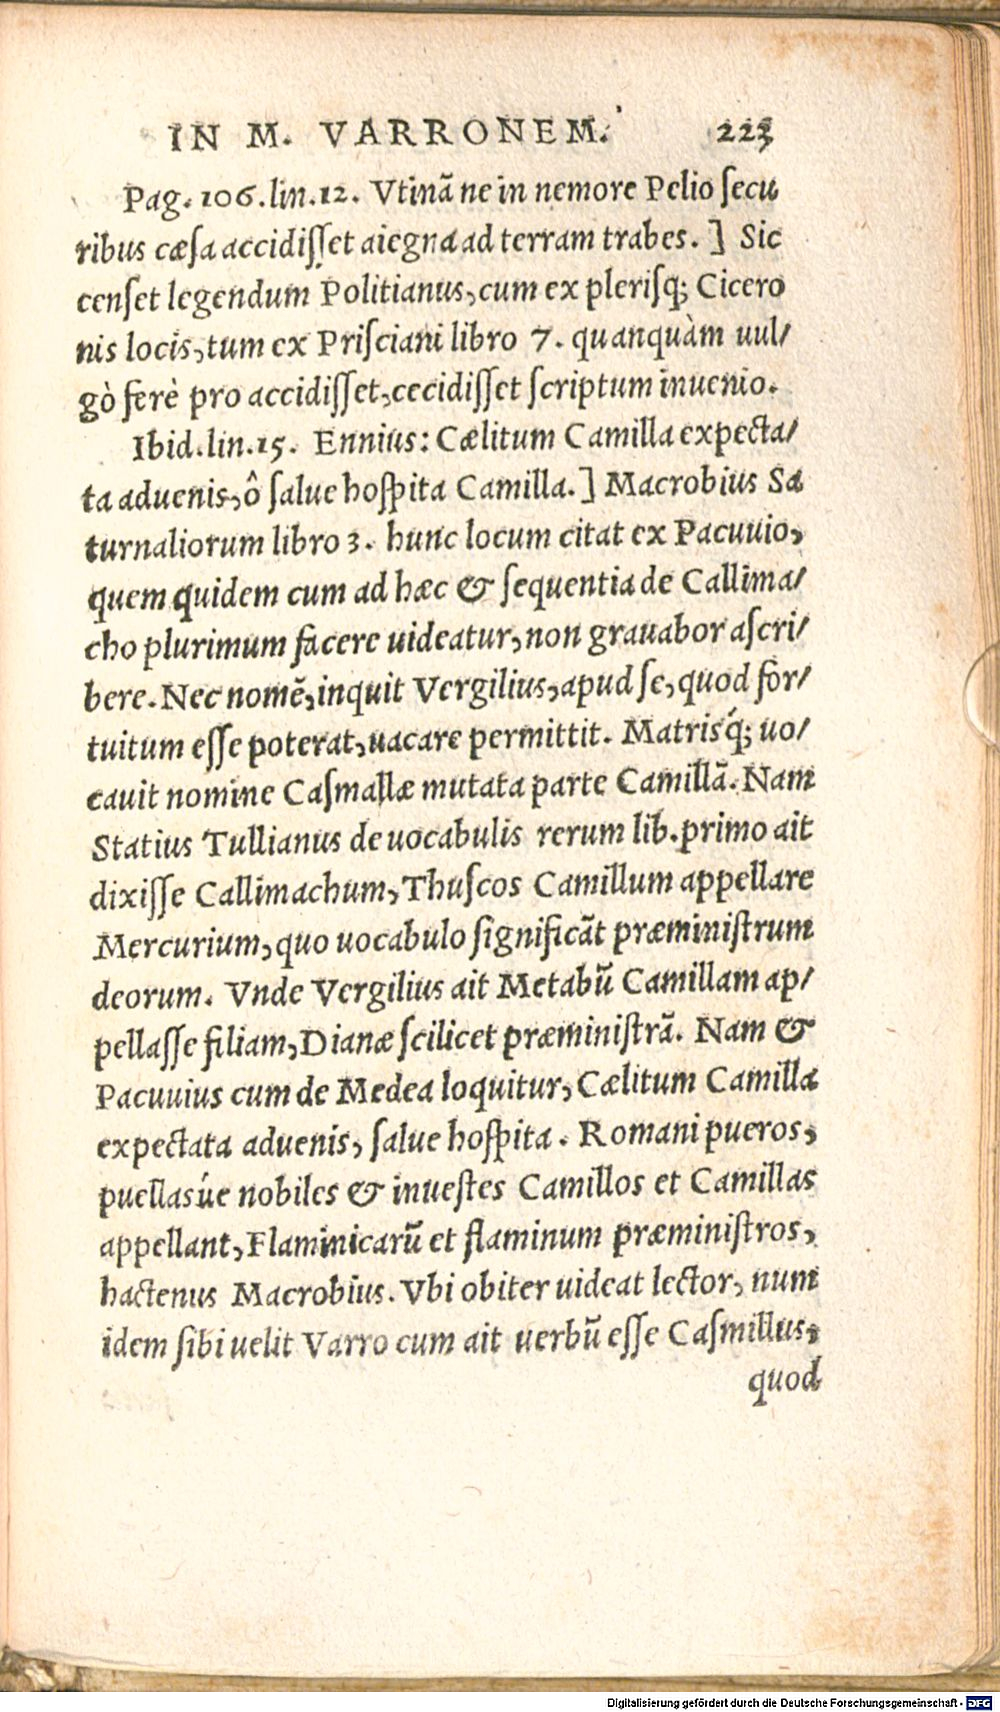 IN M. VARRONEM. 223
Pag. 106. lin. 12. Vtinā ne in nemore Pelio ſecu
ribus cæſa accidiſſet aiegna ad terram trabes. ] Sic
cenſet legendum Politianus, cum ex pleriſq; Cicero
nis locis, tum ex Priſciani libro 7. quanquàm uul/
gò ferè pro accidiſſet, cecidiſſet ſcriptum inuenio.
Ibid. lin. 15. Ennius: Cælitum Camilla expecta/
ta aduenis, ô ſalue hoſpita Camilla. ] Macrobius Sa
turnaliorum libro 3. hunc locum citat ex Pacuuio,
quem quidem cum ad hæc & ſequentia de Callima/
cho plurimum facere uideatur, non grauabor aſcri/
bere. Nec nomē, inquit Vergilius, apud ſe, quod for/
tuitum eſſe poterat, uacare permittit. Matrisq́; uo/
cauit nomine Caſmallæ mutata parte Camillā. Nam
Statius Tullianus de uocabulis rerum lib. primo ait
dixiſſe Callimachum, Thuſcos Camillum appellare
Mercurium, quo uocabulo ſignificāt præminiſtrum
deorum. Vnde Vergilius ait Metabū Camillam ap/
pellaſſe filiam, Dianæ ſcilicet præminiſtrā. Nam &
Pacuuius cum de Medea loquitur, Cælitum Camilla
expectata aduenis, ſalue hoſpita. Romani pueros,
puellasúe nobiles & inueſtes Camillos et Camillas
appellant, Flaminicarū et flaminum præminiſtros,
hactenus Macrobius. Vbi obiter uideat lector, num
idem ſibi uelit Varro cum ait uerbū eſſe Caſmillus,
quod
Digitalisierung gefördert durch die Deutsche Forschungsgemeinschaft - DFG